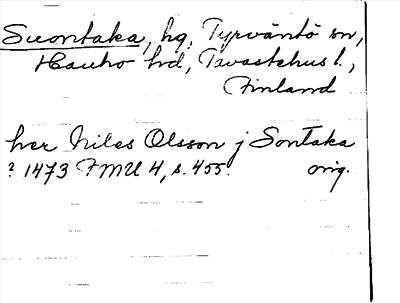 Suontaka, hg, Tyrväntö sn,
Hauho hd, Tavastehus l.,
Finland
her Niles Olsson j Sontaka
? 1473 FMU 4, s. 455. orig.